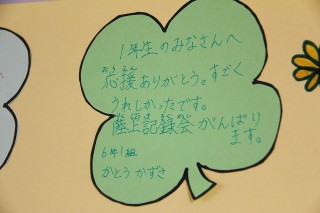 1年生のみなさんへ
おうえん
応援ありがとう。すごく
うれしかったです。
陸上記録会がんばり
ます。
6年1組
かとうかずさ